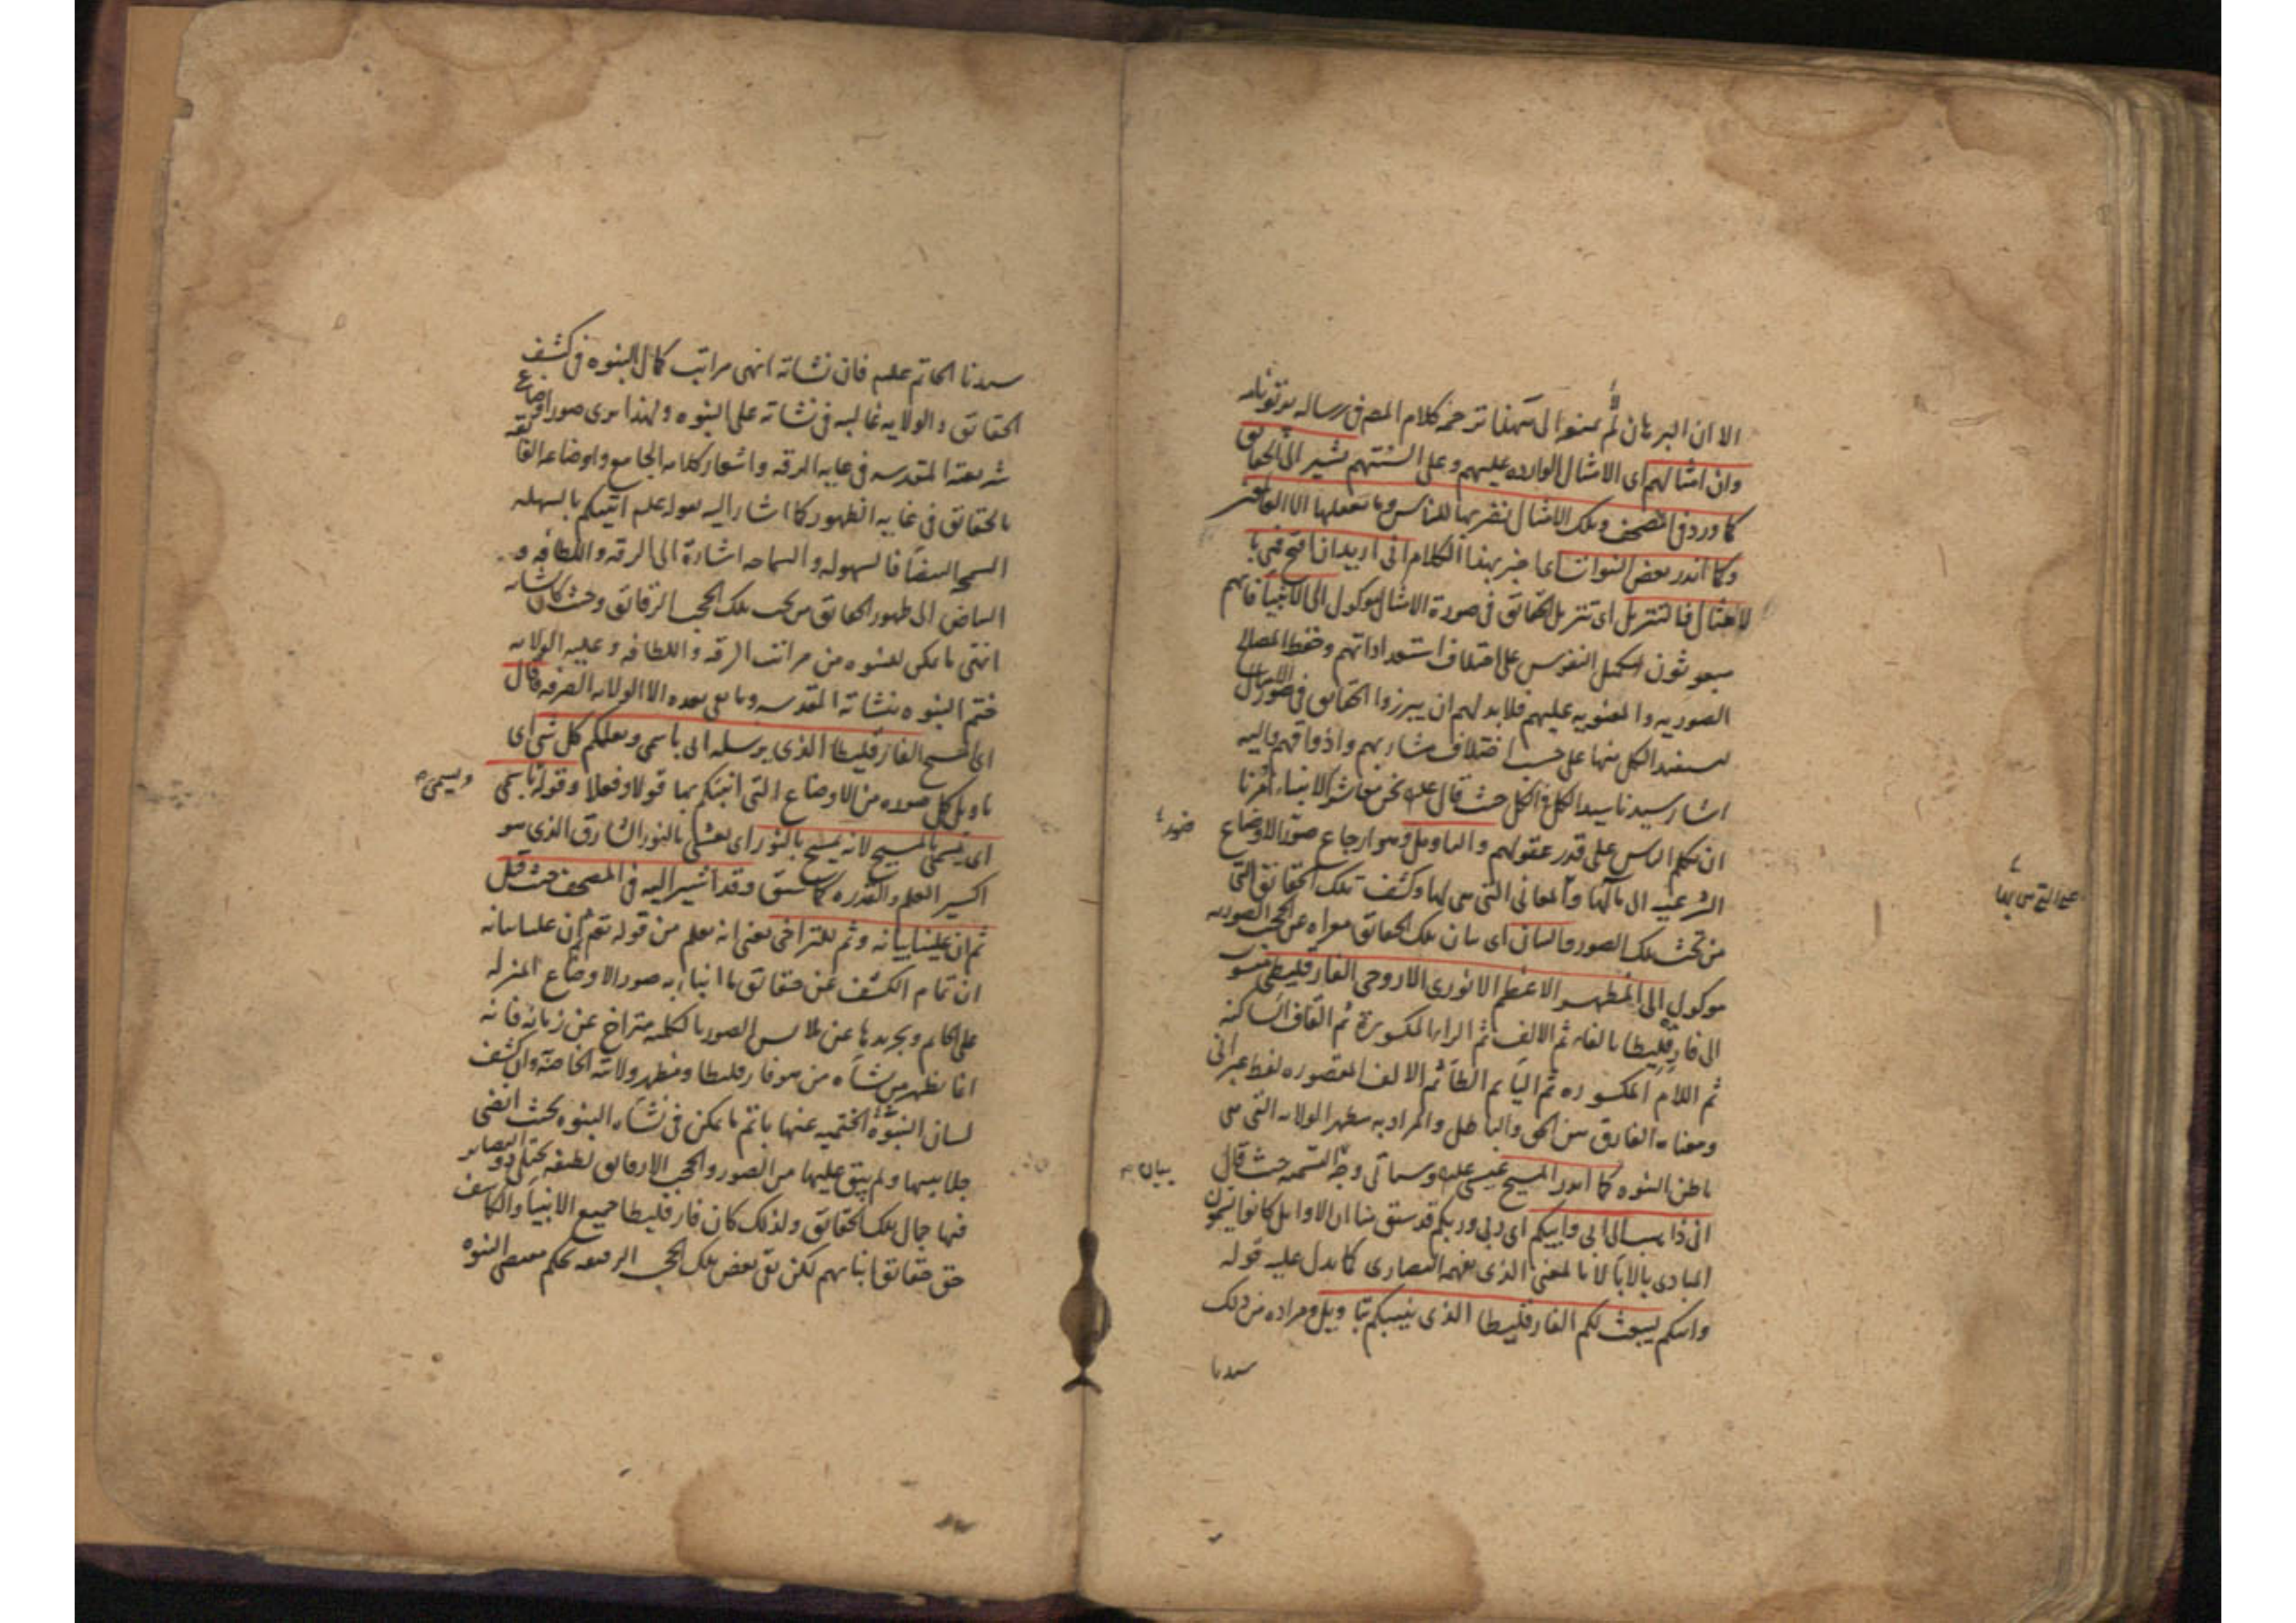 الا ان البرهان لم الى هذا ترجمة كلام المص فى رسالة
وان امثالهم اى الامثال الوارده عليهم وعلى السنتهم يشير الى الحقايق
كما ورد فى المصحف وتلك الامثال نضربها للناس وما يعقلها الا العالمون
وكما انذر بعض النبوات اى اخبر بهذا الكلام انى اريد ان افتح فمى با
لامثال فالتنزيل اى تنزيل الحقائق فى صورة الامثال موكول الى الانبياء فانهم
مبعوثون لتكميل النفوس على اختلاف استعداداتهم وحفظ المصالح
الصوريه والمعنويه عليهم فلابد لهم ان يبرزوا الحقايق فى صور الامثال
ليستفيد الكل منها على حسب اختلاف مشاربهم واذواقهم واليه
اشار سيدنا سيد الكل فى الكل حيث قال علىه نحن معاشر الانبياء امرنا
ان نكلم الناس على قدر عقولهم والتاويل وهو ارجاع صور الاوضاع
الشرعيه الى مآلها والمعانى التى هى لها وكشف تلك الحقائق التى
من تحت تلك الصور والبيان اى بيان تلك الحقايق معراه عن الحجب الصوريه
موكول الى المظهر الاعظم الانورى الاروحى الفارقليطى منسوب
الى فارقليطا بالفاء ثم الالف ثم الراء المكسورة ثم القاف الساكنه
ثم اللام المكسوره ثم الياء ثم الطاء ثم الالف المقصوره لفظ عبرانى
ومعناه الفارق بين الحق والباطل والمراد به مظهر الولايه التى هى
باطن النبوه كما انذر المسيح عيسى عليه وسياتى وجه التسميه حيث قال
انى ذاهب الى ابى وابيكم اى ربى وربكم قد سبق منا ان الاوايل كانوا يسمون
المبادى بالاباء لا بالمعنى الذى يفهمه النصارى كما يدل عليه قوله
وابيكم ليبعث لكم الفارقليطا الذى ينبيكم بتاويل ومراده من ذلك
سيدنا
بيان
سيدنا الخاتم علىه فان نشاته انهى مراتب كمال النبوه فى كشف
الحقائق والولايه غالبه فى نشاته على النبوه ولهذا يرى صور اوضاع
شريعته المقدسه فى غايه الرقه واشعار كلامه الجامع واوضاعه الفائقه
بالحقائق فى غايه الظهور كما اشار اليه بقوله علىه اتيتكم بالسهله
السمحه البيضاء فالسهوله والسماحه اشارة الى الرقه واللطافه و
البياض الى ظهور الحقايق من تحت تلك الحجب الرقائق وحيث كان نشاته
انتهى ما يمكن للنبوه من مراتب الرقه واللطافه وغلبه الولايه
ختم النبوه بنشاته المقدسه وما بقى بعده الا الولايه الصرفه فقال
اى المسيح الفارقليطا الذى يرسله ابى باسمى ويعلمكم كل شى اى
تاويل كل صوره من الاوضاع التى اتيتكم بها قولا وفعلا وقوله باسمى
ويسمى
اى يسمى بالمسيح لانه يمسح بالنور اى يغشى بالنور الشارق الذى هو
اكسير العلم والقدره كما سبق وقد اشير اليه فى المصحف حيث قال
ثم ان علينا بيانه وثم للتراخى يعنى انه يعلم من قوله تع ثم ان علينا بيانه
ان تمام الكشف عن حقائق ما انبا به صور الاوضاع المنزله
على الخاتم وتجريدها عن ملابس الصور بالكليه متراخ عن زمانه فانه
انما يظهر من نشاه من هو فارقليطا ومظهر ولايته الخاصة وان كشف
لسان النبوة الختميه عنها باتم ما يمكن فى نشاه النبوه بحيث انضى
جلابيبها ولم يبق عليها من الصور والحجب الا رقايق لطيفه يجتلى ذوو البصاير
فيها جمال تلك الحقائق ولذلك كان فارقليطا جميع الانبياء والكاشف
حق حقائق انبائهم لكن بقى بعض تلك الحجب الرقيقه بحكم مقتضى النبوه